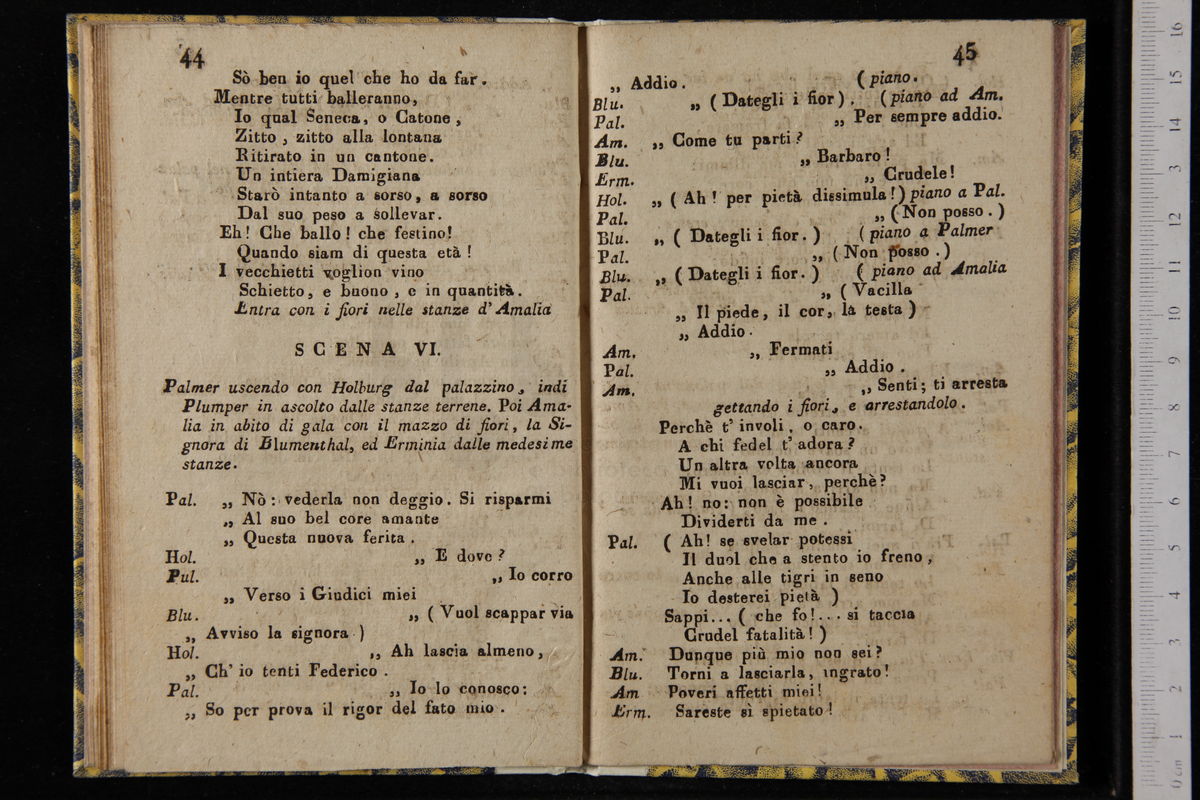 44
Sò ben io quel che ho da far.
Mentre tutti balleranno,
Io qual Seneca, o Catone,
Zitto, zitto alla lontana
Ritirato in un cantone.
Un intiera Damigiana
Starò intanto a sorso, a sorso
Dal suo peso a sollevar.
Eh! Che ballo! che festino!
Quando siam di questa età!
I vecchietti voglion vino
Schietto, e buono, e in quantità.
Entra con i fiori nelle stanze d'Amalia
SCENA VI.
Palmer uscendo con Holburg dal palazzino, indi
Plumper in ascolto dalle stanze terrene. Poi Ama-
lia in abito di gala con il mazzo di fiori, la Si-
gnora di Blumenthal, ed Erminia dalle medesime
stanze.
Pal. „ Nò: vederla non deggio. Si risparmi
„ Al suo bel core amante
„ Questa nuova ferita.
Hol. „ E dove?
Pul. „ Io corro
„ Verso i Giudici miei
Blu. „ (Vuol scappar via
„ Avviso la signora)
Hol. „ Ah lascia almeno,
„ Ch'io tenti Federico.
Pal. „ Io lo conosco:
„ So per prova il rigor del fato mio.
45
„ Addio. (piano.
Blu. „ (Dategli i fior). (piano ad Am.
Pal. „ Per sempre addio.
Am. „ Come tu parti?
Blu. „ Barbaro!
Erm. „ Crudele!
Hol. „ (Ah! per pietà dissimula!) piano a Pal.
Pal. „ (Non posso.)
Blu. „ (Dategli i fior.) (piano a Palmer
Pal. „ (Non posso.)
Blu. „ (Dategli i fior.) (piano ad Amalia
Pal. „ (Vacilla
„ Il piede, il cor, la testa)
„ Addio.
Am. „ Fermati
Pal. „ Addio.
Am. „ Senti; ti arresta
gettando i fiori, e arrestandolo.
Perchè t'involi, o caro.
A chi fedel t'adora?
Un altra volta ancora
Mi vuoi lasciar, perchè?
Ah! no: non è possibile
Dividerti da me.
Pal. (Ah! se svelar potessi
Il duol che a stento io freno,
Anche alle tigri in seno
Io desterei pietà)
Sappi... (che fo!... si taccia
Crudel fatalità!)
Am. Dunque più mio non sei?
Blu. Torni a lasciarla, ingrato!
Am Poveri affetti miei!
Erm. Sareste sì spietato!
0 cm 1 2 3 4 5 6 7 8 9 10 11 12 13 14 15 16